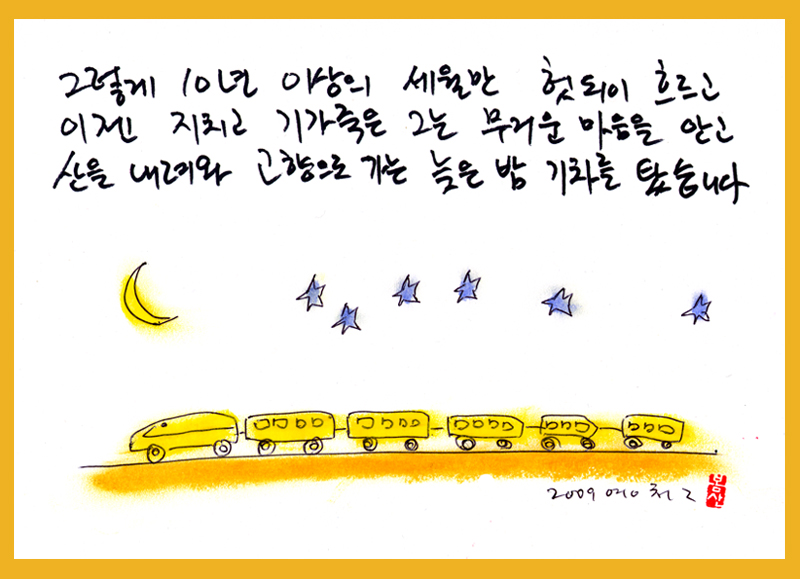 그렇게 10년 이상의 세월만 헛되이 흐르고
이젠 지치고 기가죽은 그는 무거운 마음을 안고
산을 내려와 고향으로 가는 늦은 밤 기차를 탔습니다
2009
봄산